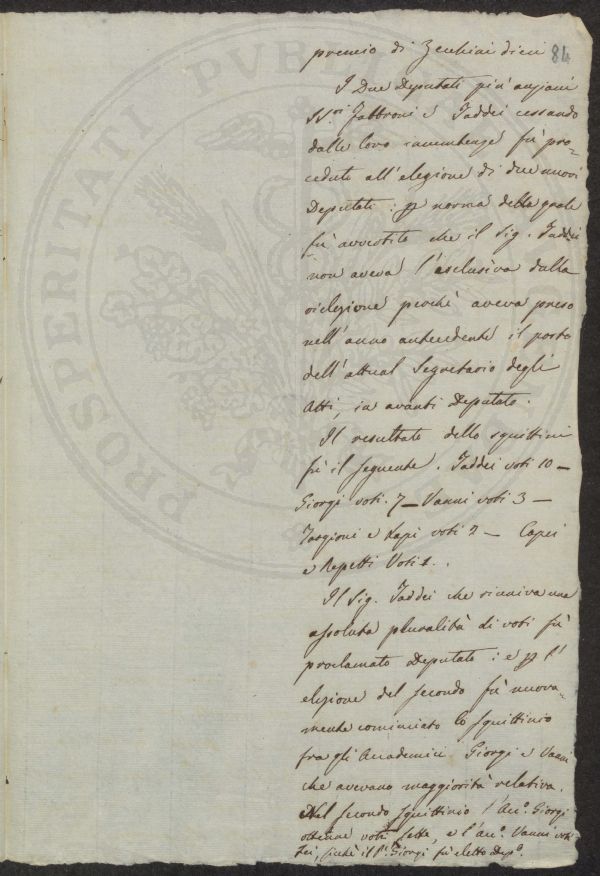 84
premio di Zecchini dieci
I Due Deputati più anziani
SS.ri Fabbroni e Taddei cessando
dalle loro incumbenze fù pro=
ceduto all'elezione di due nuovi
Deputati: p norma della quale
fù avvertito che il Sig. Taddei
non aveva l'esclusiva dalla
rielezione perchè aveva preso
nell'anno antecedente il posto
dell'attual Segretario degli
Atti, in avanti Deputato.
Il resultato dello squittinio
fù il seguente. Taddei voti 10 —
Giorgi voti 7 — Vanni voti 3 —
Targioni e Rapi voti 2 — Capei
e Repetti Voti 1.
Il Sig. Taddei che riuniva una
assoluta pluralità di voti fù
proclamato Deputato: e p l'
elezione del secondo fù nuova=
mente cominciato lo squittinio
fra gli Accademici Giorgi e Vanni
che avevano maggiorità relativa.
Nel secondo squittinio l'Acc.o Giorgi
ottenne voti sette, e l'Acc.o Vanni voti
sei, sicchè il P. Giorgi fù eletto Dep.o
PROSPERITATI PUBLICAE